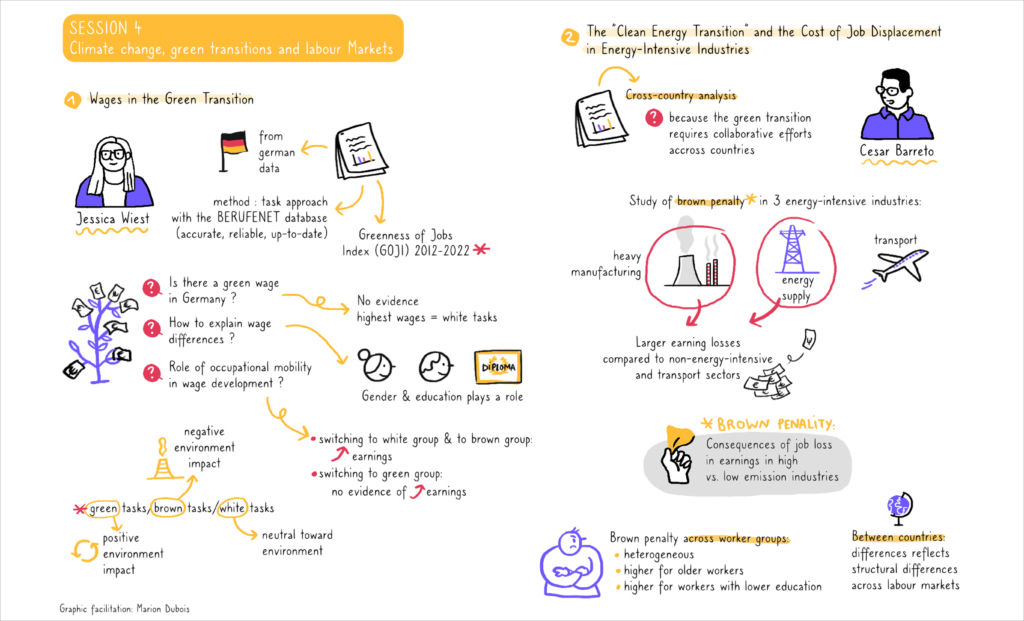 SESSION 4
Climate change, green transitions and labour Markets
1 Wages in the Green Transition
Jessica Wiest
from
german
data
method : task approach
with the BERUFENET database
(accurate, reliable, up-to-date)
Greenness of Jobs
Index (GOJI) 2012-2022 *
? Is there a green wage
in Germany ?
No evidence
highest wages = white tasks
? How to explain wage
differences ?
DIPLOMA
Gender & education plays a role
? Role of occupational mobility
in wage development ?
• switching to white group & to brown group:
earnings
• switching to green group:
no evidence of earnings
negative
environment
impact
* green tasks/brown tasks/white tasks
positive
environment
impact
neutral toward
environment
Graphic facilitation: Marion Dubois
2 The "Clean Energy Transition" and the Cost of Job Displacement
in Energy-Intensive Industries
Cross-country analysis
? because the green transition
requires collaborative efforts
accross countries
Cesar Barreto
Study of brown penalty * in 3 energy-intensive industries:
heavy
manufacturing
energy
supply
transport
Larger earning losses
compared to non-energy-intensive
and transport sectors
* BROWN PENALITY:
Consequences of job loss
in earnings in high
vs. low emission industries
Brown penalty across worker groups:
• heterogeneous
• higher for older workers
• higher for workers with lower education
Between countries:
differences reflects
structural differences
across labour markets